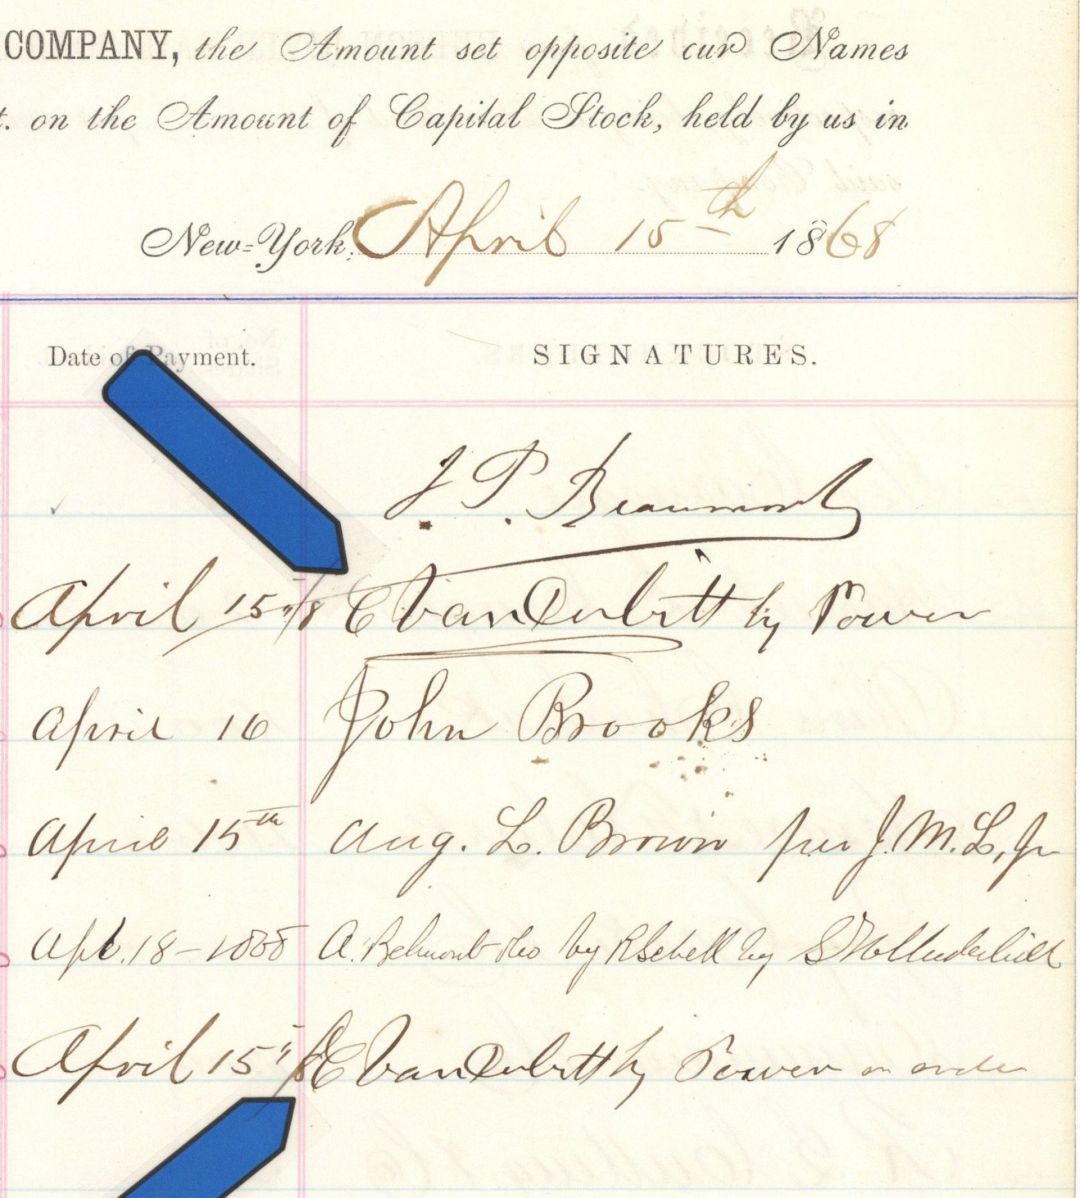 COMPANY, the Amount set opposite our Names
t. on the Amount of Capital Stock, held by us in
New=York, April 15th 1868
Date of Payment. SIGNATURES.
J. P. Beaumont
April 15 /68 E Vanderbilt by Power
April 16 John Brooks
April 15th Aug. L. Brown per J. M. L, Jr
Apl. 18-1868 A. Belmont &Co by R Schell by
April 15 E Vanderbilt by Power or order